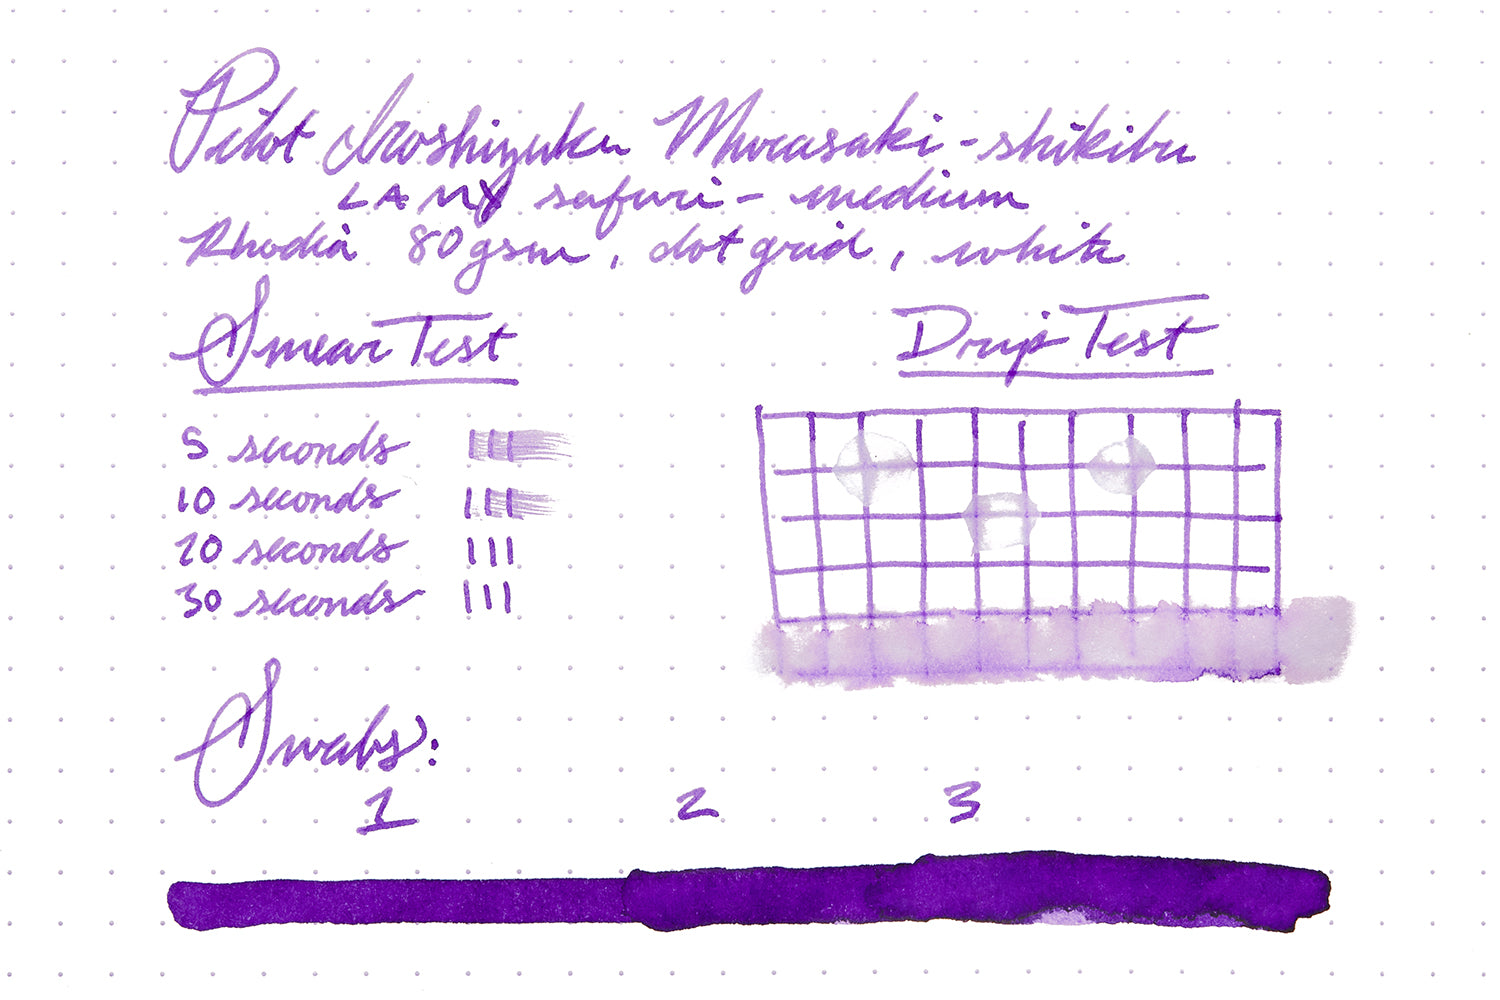 Pilot Iroshizuku Murasaki-shikibu
LAMY safari - medium
Rhodia 80gsm, dot grid, white
Smear Test
5 seconds
10 seconds
20 seconds
30 seconds
Drip Test
Swabs:
1 2 3